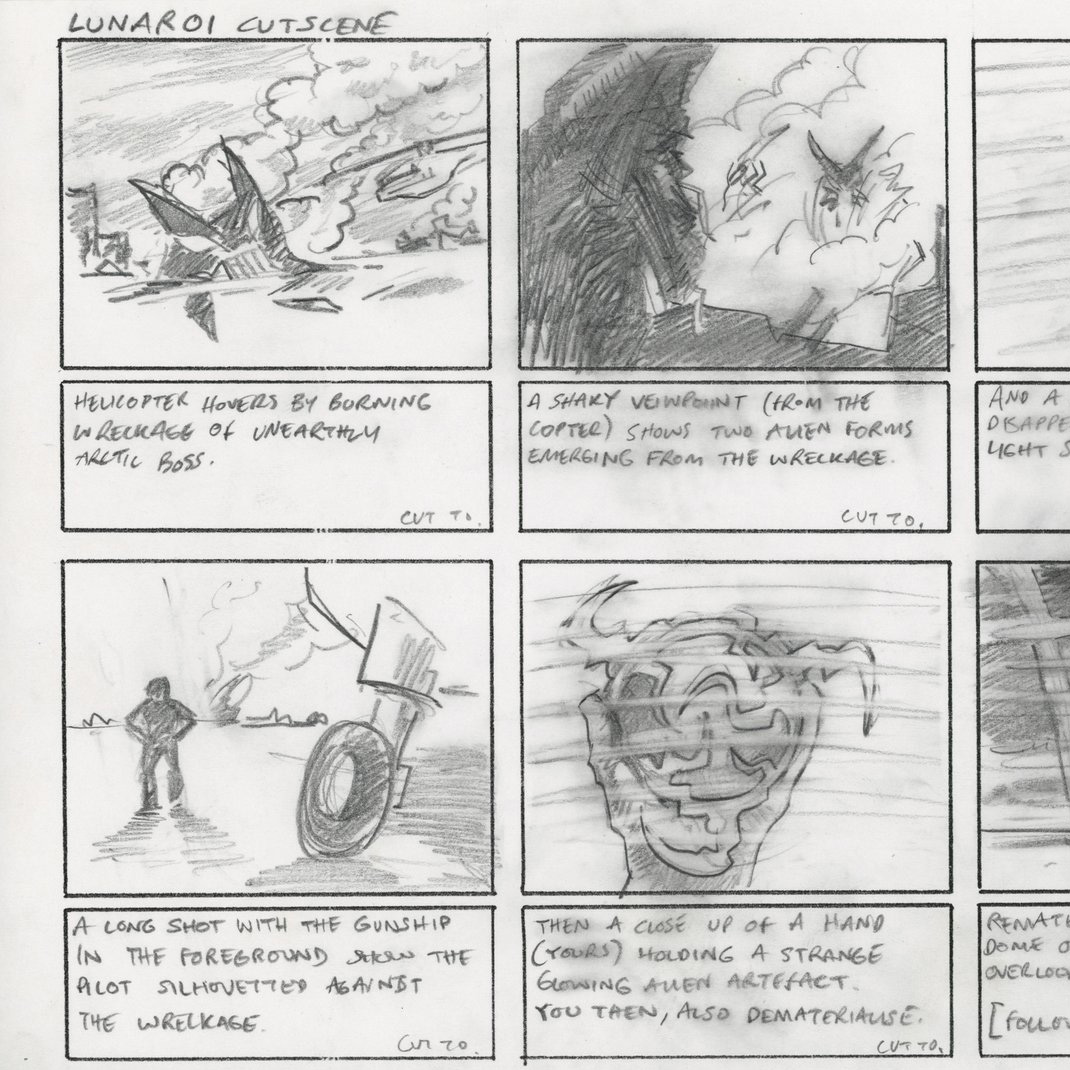 LUNAR01 CUTSCENE
HELICOPTER HOVERS BY BURNING
WRECKAGE OF UNEARTHLY
ARCTIC BOSS.
CUT TO.
A SHAKY VEIWPOINT (FROM THE
COPTER) SHOWS TWO ALIEN FORMS
EMERGING FROM THE WRECKAGE.
CUT TO.
AND A
DISAPPE
LIGHT S
A LONG SHOT WITH THE GUNSHIP
IN THE FOREGROUND THE
PILOT SILHOUETTED AGAINST
THE WRECKAGE.
CUT TO.
THEN A CLOSE UP OF A HAND
(YOURS) HOLDING A STRANGE
GLOWING ALIEN ARTEFACT.
YOU THEN, ALSO DEMATERIALISE.
CUT TO.
REMATE
DOME O
OVERLOO
[FOLLOW